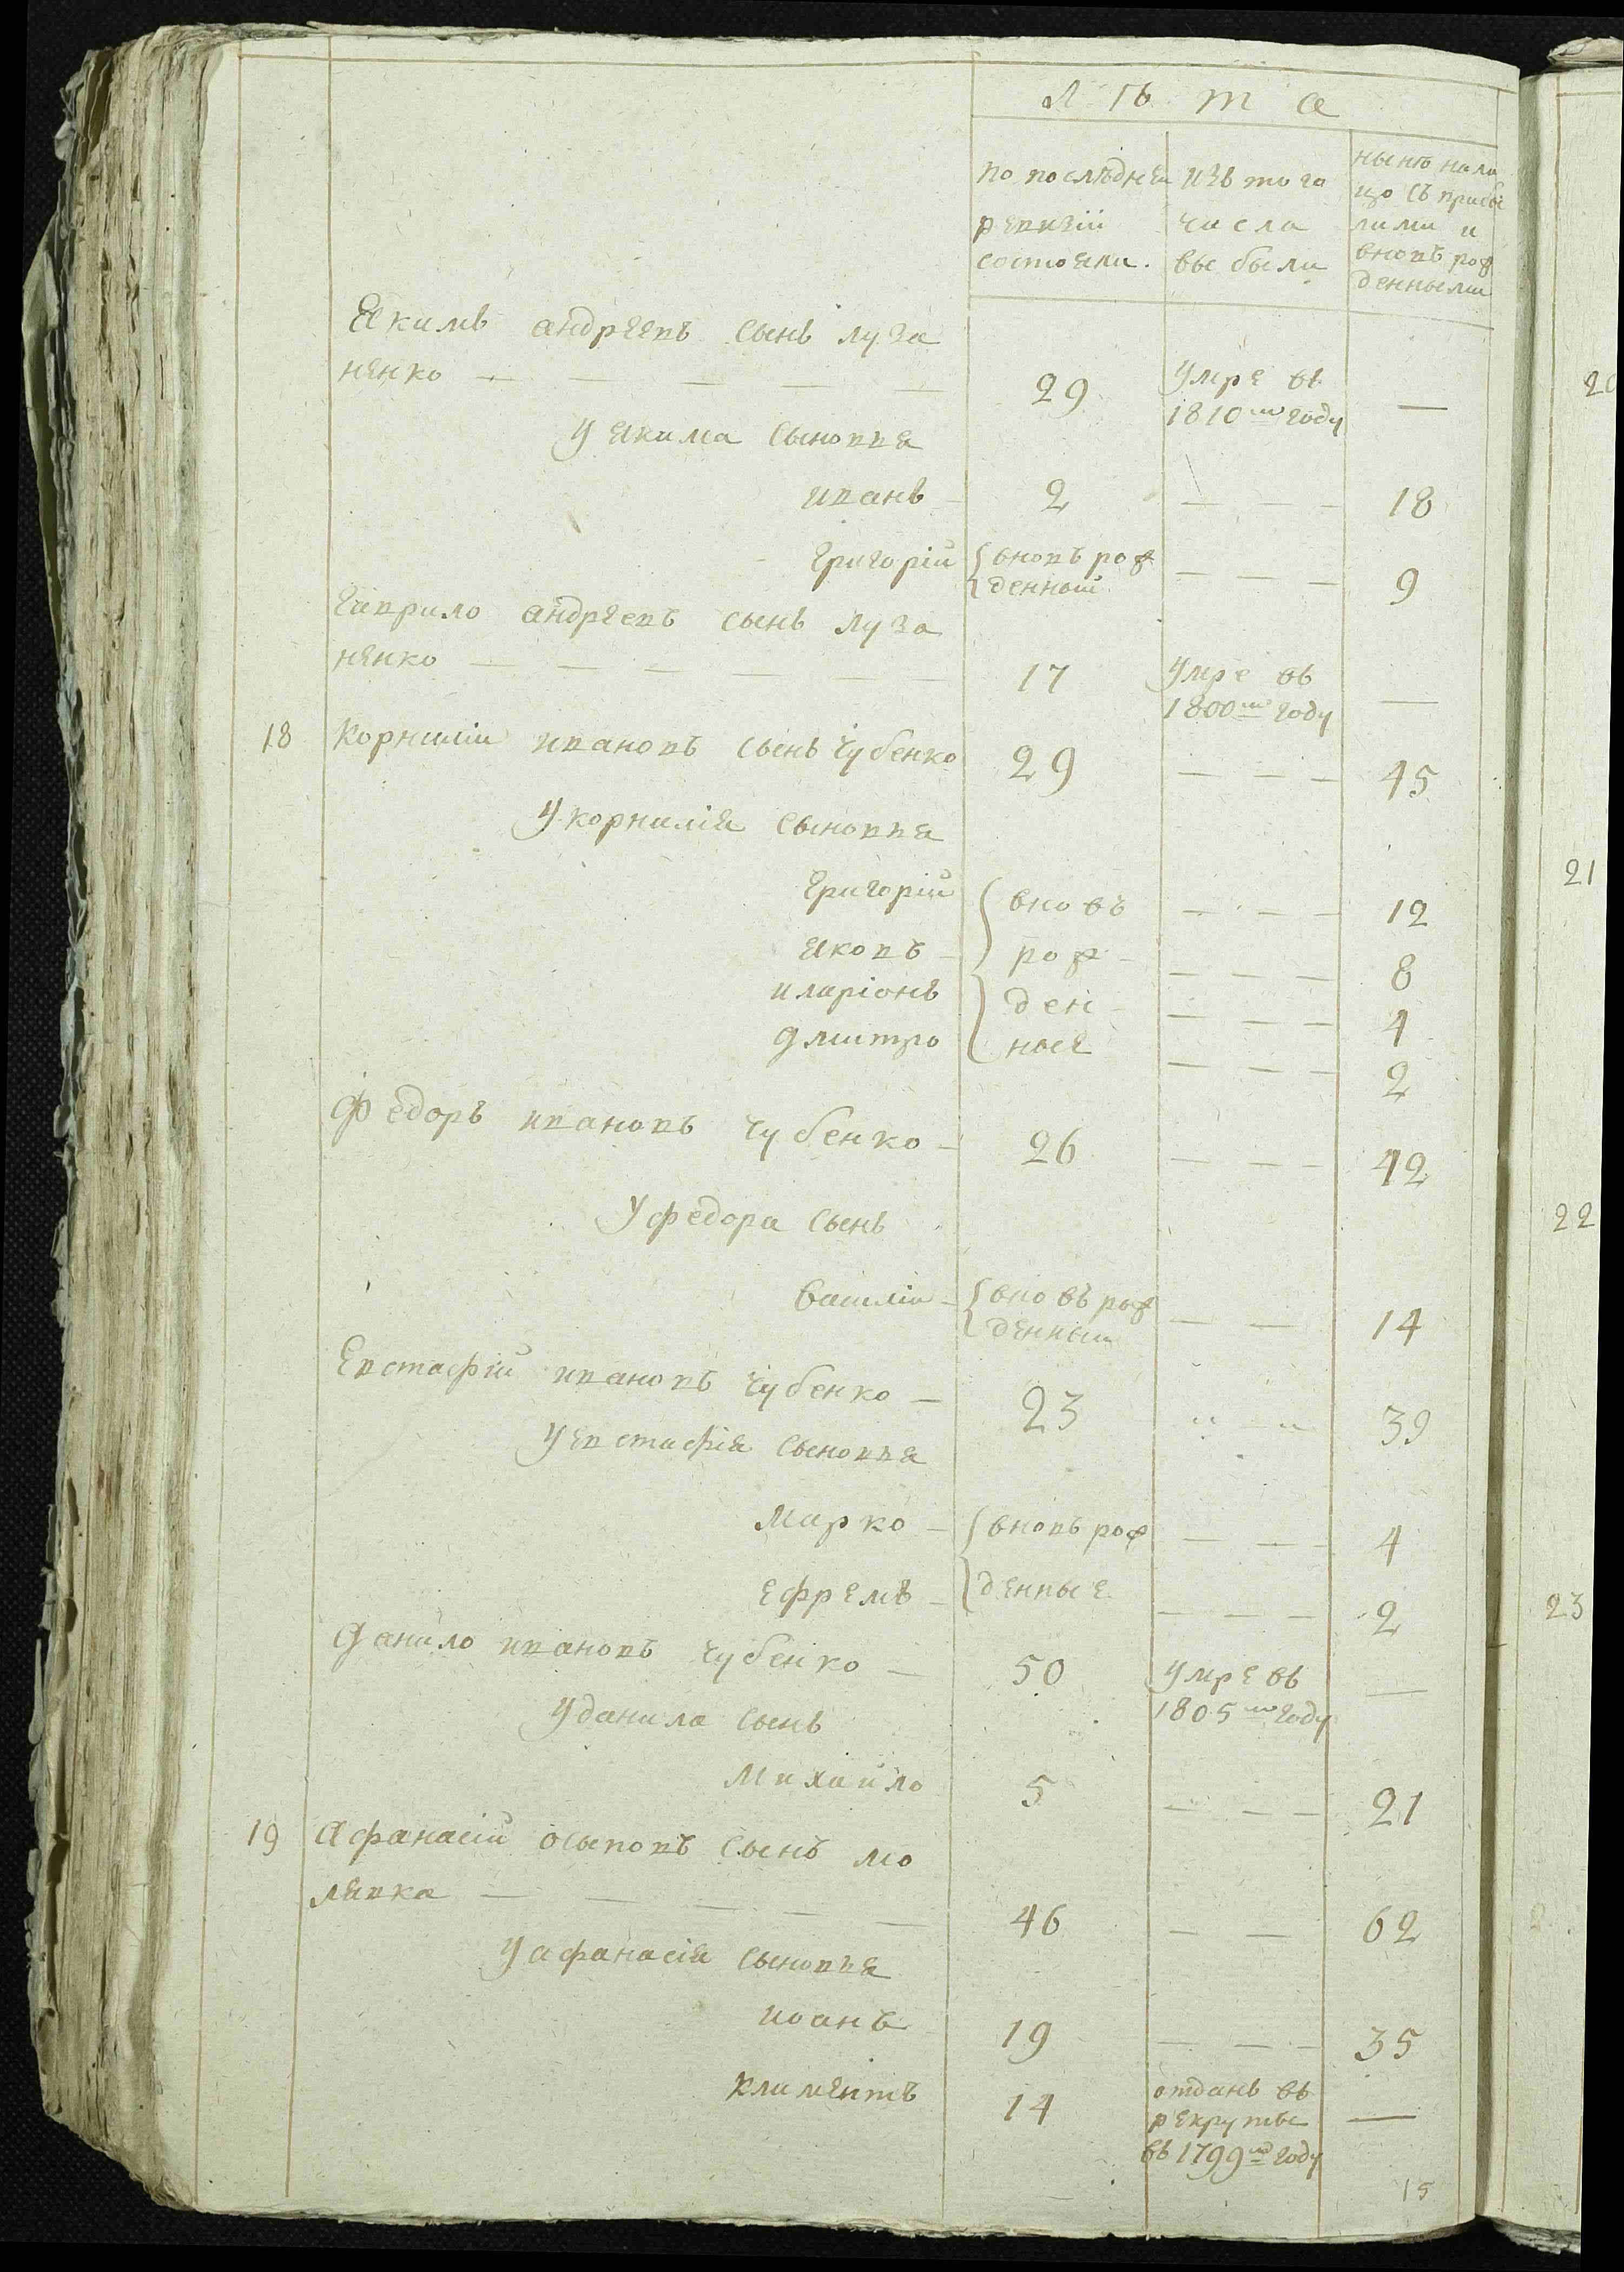 Лѣта
по последней ревизіи состояли.
изъ того числа выбыли
нынѣ на лицо съ прибылими и вновь рожденными
Якимъ андреевъ сынъ луза
ненко — — — — — 29 умре въ 1810м году —
у якима сыновья
иванъ — 2 — — — 18
григорій {вновь рожденный — — — 9
гаврило андреевъ сынъ луза
ненко — — — — — — 17 умре въ 1800м году —
18 корнилій ивановъ сынъ чубенко 29 — — — 45
у корнилія сыновья
григорій {вновь — — — 12
яковъ — рож — — — — 8
иларіонъ ден — — — — 4
дмитро ные — — — 2
федоръ ивановъ чубенко — 26 — — — 42
у федора сынъ
василій — {вновь рожденный — — 14
евстафій ивановъ чубенко — 23 „ „ 39
у евстафія сыновья
марко — {вновь рож — — — 4
ефремъ — денные — — — 2
данило ивановъ чубенко — 50 умре въ 1805м году —
у данила сынъ
михайло 5 — — — 21
19 афанасій осыповъ сынъ мо
лявка — — — — — 46 — — 62
у афанасія сыновья
иоанъ 19 — — — 35
климентъ 14 отданъ въ рекруты въ 1799м году —
15
21
22
23